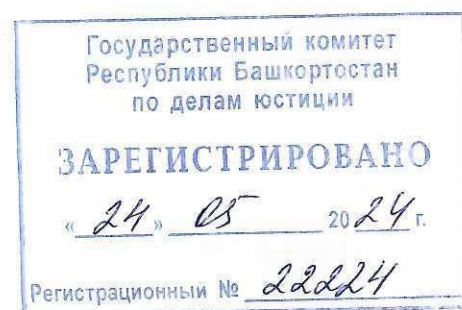 Государственный комитет
Республики Башкортостан
по делам юстиции
ЗАРЕГИСТРИРОВАНО
«24» 05 2024 г.
Регистрационный № 22224